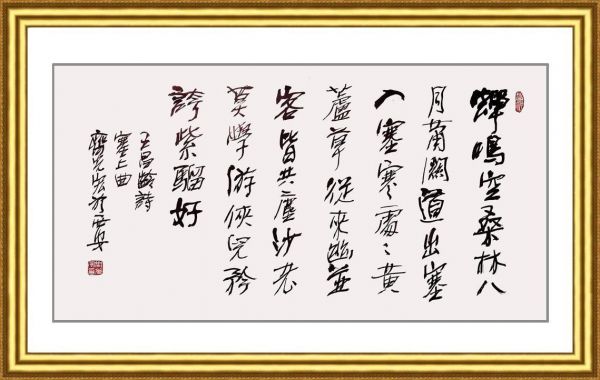 蟬鳴空桑林八
月蕭關道出塞
入塞寒處〻黄
蘆草從來幽並
客皆共塵沙老
莫學游俠兒矜
誇紫騮好
王昌齡詩
塞上曲
於西安